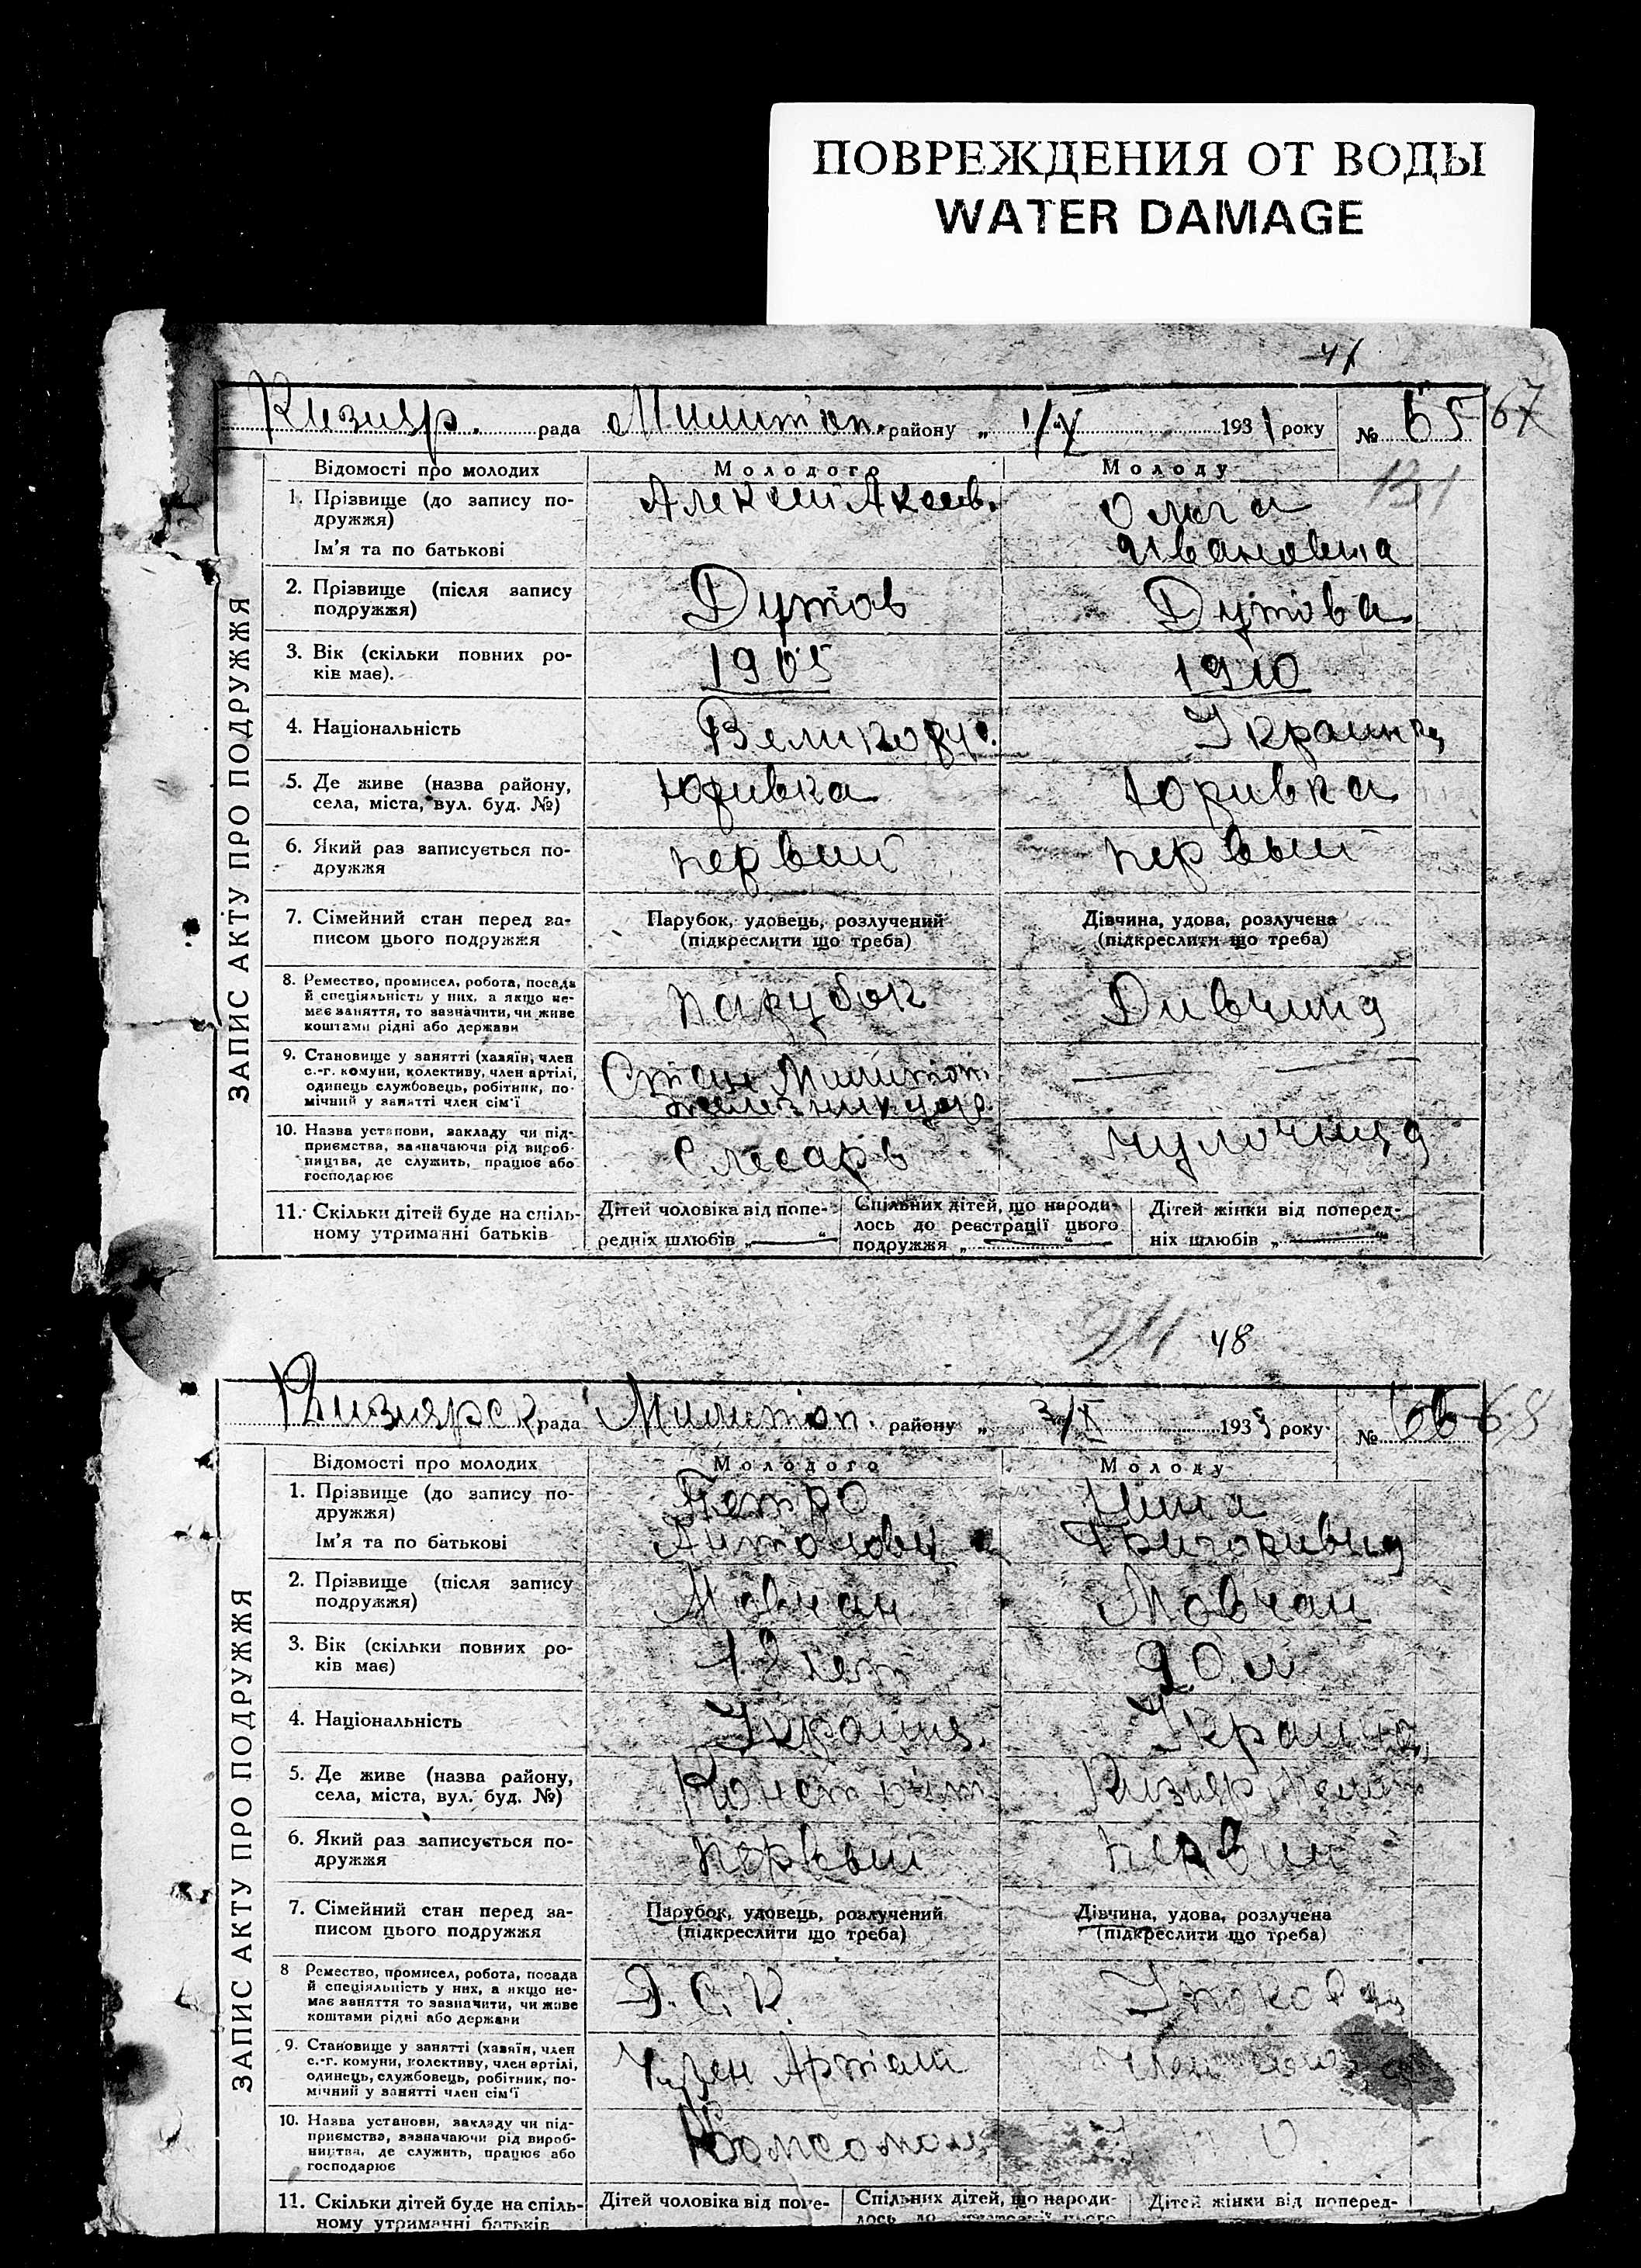 ПОВРЕЖДЕНИЯ ОТ ВОДЫ
WATER DAMAGE
Кизияр. рада Милитоп. району „ 1/V 1931 року № 65 67
131
Відомості про молодих Молодого Молоду
1. Прізвище (до запису по-
дружжя)
Ім'я та по батькові
Алексей Акеев.
Ольга
Ивановна
2. Прізвище (після запису
подружжя)
Дутов Дутова
3. Вік (скільки повних ро-
ків має).
1905 1910
4. Національність
Украинка
5. Де живе (назва району,
села, міста, вул. буд. №)
Юривка Юривка
6. Який раз записується по-
дружжя
первий первый
7. Сімейний стан перед за-
писом цього подружжя
Парубок, удовець, розлучений
(підкреслити що треба)
Дівчина, удова, розлучена
(підкреслити що треба)
8. Ремество, промисел, робота, посада
й спеціяльність у них, а якщо не-
має заняття, то зазначити, чи живе
коштами рідні або держави
Парубок Дивчина
9. Становище у занятті (хазяїн, член
с.-г. комуни, колективу, член артілі,
одинець службовець, робітник, по-
мічний у занятті член сім'ї
Милитоп.
10. Назва установи, закладу чи під-
приємства, зазначаючи рід вироб-
ництва, де служить, працює або
господарює
Слесарь чулочница
11. Скільки дітей буде на спіль-
ному утриманні батьків
Дітей чоловіка від попе-
редніх шлюбів „ “
Спільних дітей, що народи-
лось до реєстрації цього
подружжя „ “
Дітей жінки від поперед-
ніх шлюбів „ “
ЗАПИС АКТУ ПРО ПОДРУЖЖЯ
48
Кизиярск рада Милитоп. району „ 3/V 193 року № 66 68
Відомості про молодих Молодого Молоду
1. Прізвище (до запису по-
дружжя)
Ім'я та по батькові
Петро
Антонович
Нина
Григоривна
2. Прізвище (після запису
подружжя)
Мовчан Мовчан
3. Вік (скільки повних ро-
ків має)
18 лет 20 л
4. Національність
Украинец. Украинка
5. Де живе (назва району,
села, міста, вул. буд. №)
Кизияр
6. Який раз записується по-
дружжя
первый первий
7. Сімейний стан перед за-
писом цього подружжя
Парубок, удовець, розлучений
(підкреслити що треба)
Дівчина, удова, розлучена
(підкреслити що треба)
8 Ремество, промисел, робота, посада
й спеціяльність у них, а якщо не-
має заняття то зазначити, чи живе
коштами рідні або держави
9. Становище у занятті (хазяїн, член
с.-г. комуни, колективу, член артілі,
одинець, службовець, робітник, по-
мічний у занятті член сім'ї
Член Артели Член
10. Назва установи, закладу чи під-
приємства, зазначаючи рід вироб-
ництва, де служить, працює або
господарює
Комсомолец
11. Скільки дітей буде на спіль-
ному утриманні батьків
Дітей чоловіка від попе-
Спільних дітей, що народи-
лось до
Дітей жінки від поперед-
ЗАПИС АКТУ ПРО ПОДРУЖЖЯ